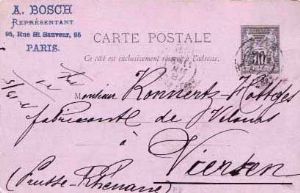 A. BOSCH
REPRÉSENTANT
95, Rue St. Sauveur, 95
PARIS.
CARTE POSTALE
Ce côté est exclusivement réservé à l'adresse.
10
Monsieur Konnertz Hottges
fabricant de Velours
à
Viersen
(Prusse Rhénane)